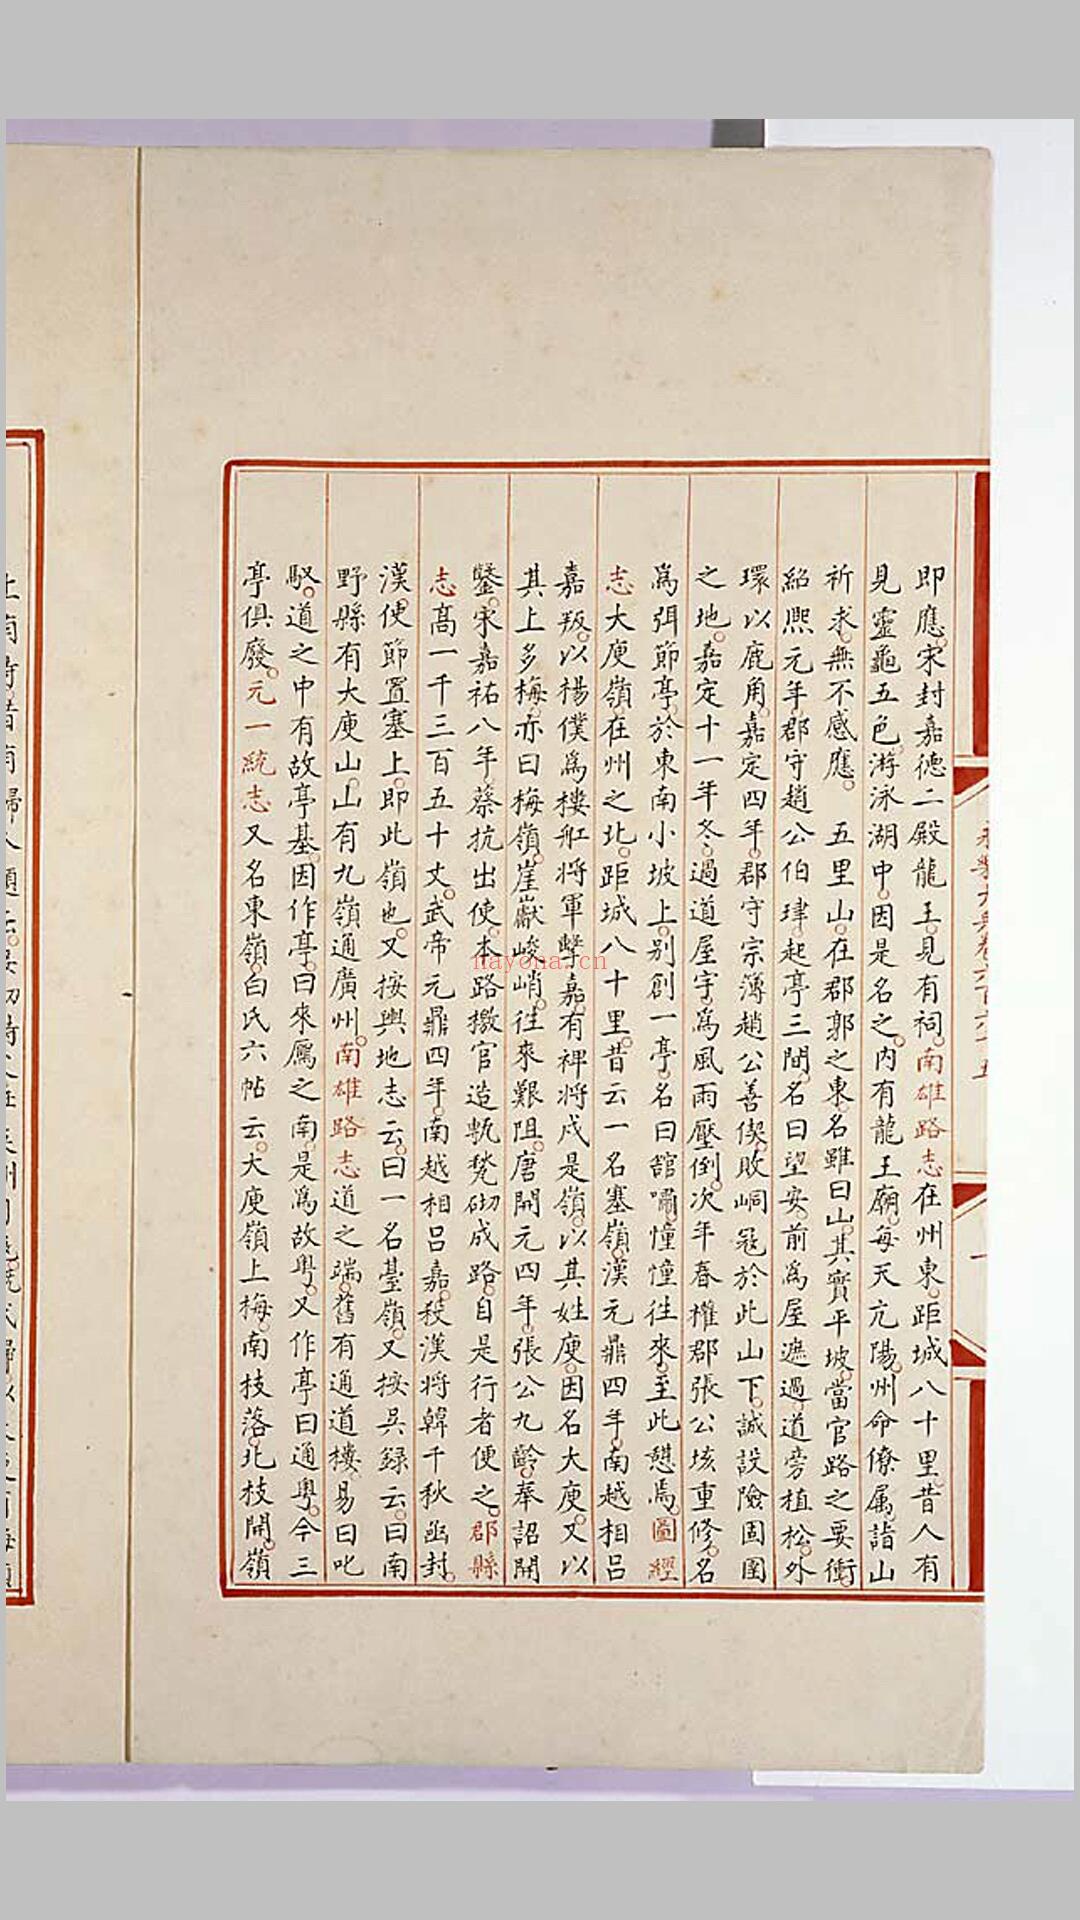 永樂大典卷六百六十五
一
即應。宋封嘉德二殿龍王。見有祠。南雄路志在州東。距城八十里。昔人有
見靈龜五色。游泳湖中。因是名之。内有龍王廟。每天亢陽。州命僚属詣山
祈求。無不感應。 五里山。在郡郭之東。名雖曰山。其實平坡。當官路之要衝。
紹熈元年。郡守趙公伯㻶。起亭三間。名曰望安。前爲屋遮過。道旁植松。外
環以鹿角。嘉定四年。郡守宗簿趙公善偰。敗峒冦於此山下。誠設險固圉
之地。嘉定十一年冬。過道屋宇。爲風雨壓倒。次年春。權郡張公垓重修。名
爲弭節亭。於東南小坡上。别創一亭。名曰舘嘯。憧憧往來。至此憇焉。圖經
志大庾嶺。在州之北。距城八十里。昔云一名塞嶺。漢元鼎四年。南越相吕
嘉叛。以楊僕爲樓舡將軍擊嘉。有裨將戍是嶺。以其姓庾。因名大庾。又以
其上多梅。亦曰梅嶺。崖巘峻峭。往來艱阻。唐開元四年。張公九齡。奉詔開
鑿。宋嘉祐八年。蔡抗出使。本路檄官造甎甃砌成路。自是行者便之。郡縣
志高一千三百五十丈。武帝元鼎四年。南越相吕嘉。殺漢將韓千秋。函封
漢使節置塞上。即此嶺也。又按輿地志云。曰一名臺嶺。又按吴録云。曰南
野縣有大庾山。山有九嶺通廣州。南雄路志道之端。舊有通道樓。易曰叱
馭。道之中有故亭基。因作亭。曰來鴈之南。是爲故粤。又作亭曰通粤。今三
亭俱廢。元一統志又名東嶺。白氏六帖云。大庾嶺上梅。南枝落。北枝開。嶺